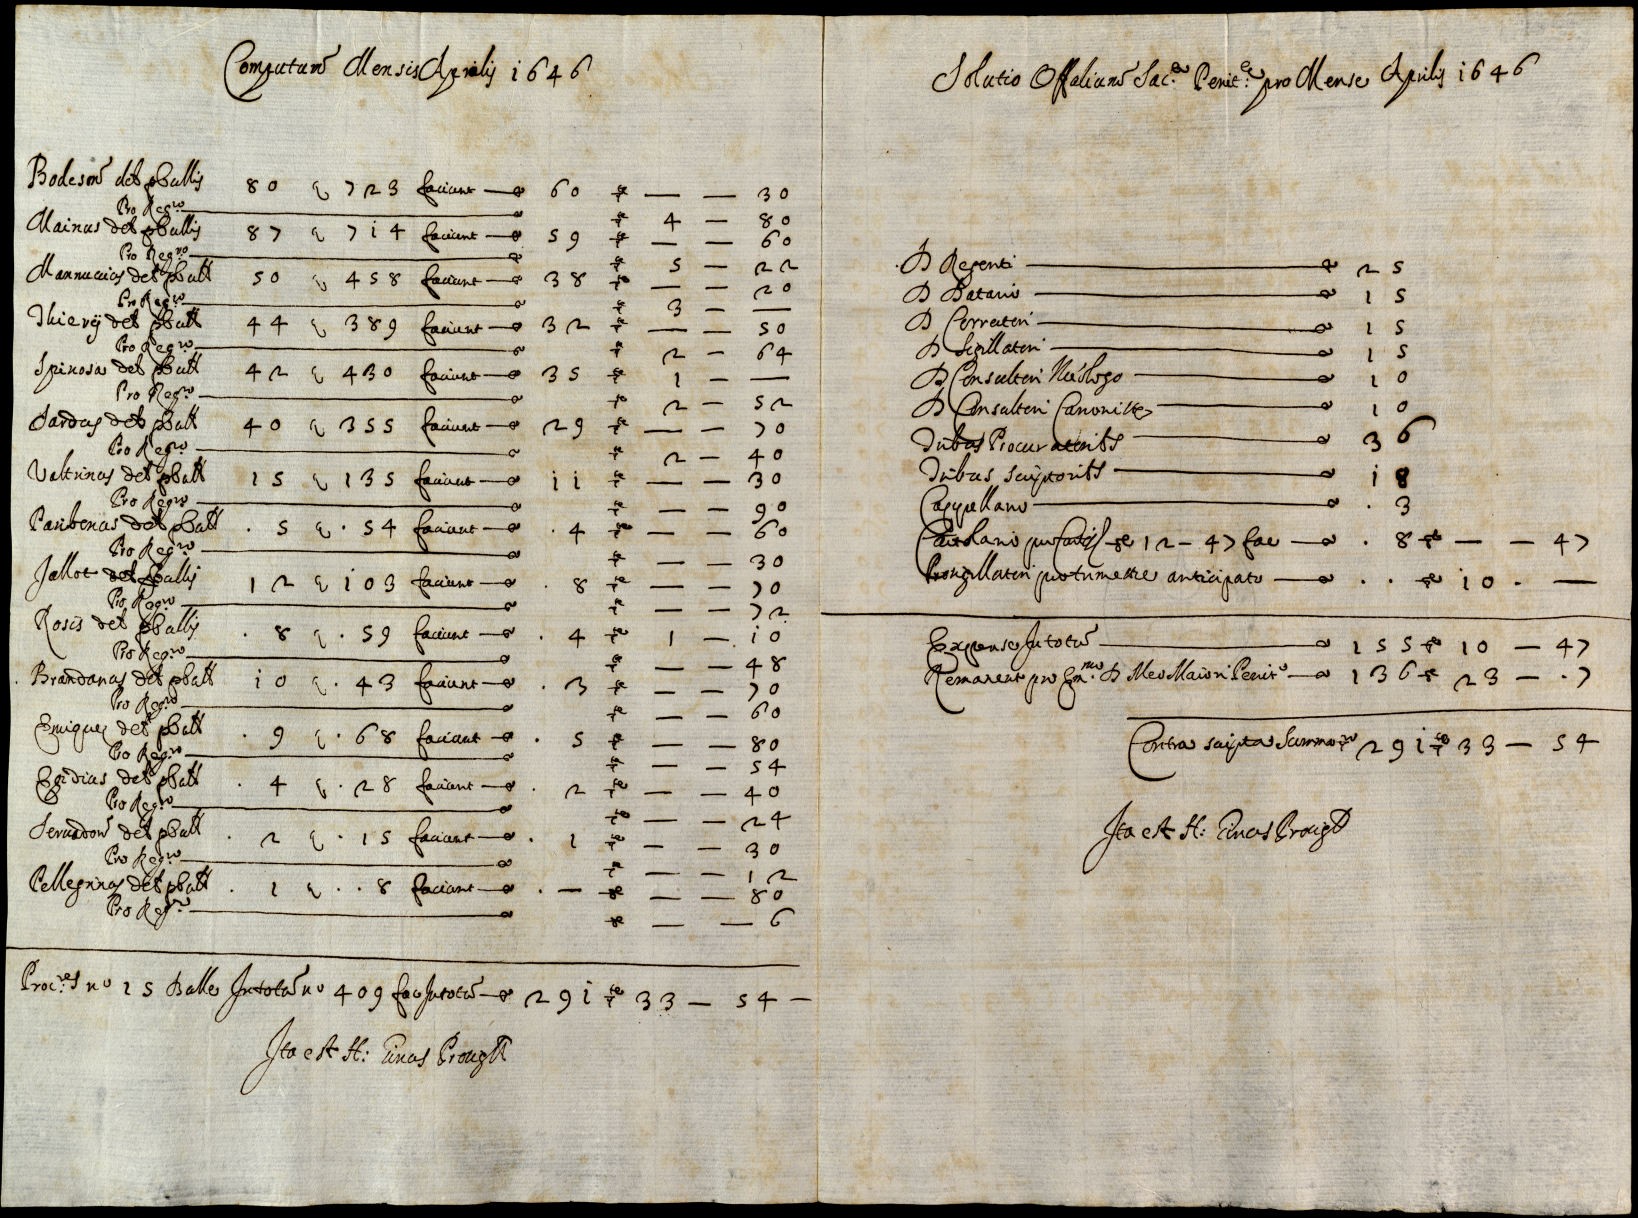 Computum Mensis Aprilis 1646
Bodeson det p Bullis 80 q 723 faciunt 60 — — 30
Pro Reg.ro 4 — 80
Mainus det p Bullis 87 q 714 faciunt 59 — — 60
Pro Reg.ro 5 — 22
Mannucius det p Bull 50 q 458 faciunt 38 — — 20
Pro Reg.ro 3 — —
Thierij det p Bull 44 q 389 faciunt 32 — — 50
Pro Reg.ro 2 — 64
Spinosa det p Bull 42 q 430 faciunt 35 1 — —
Pro Reg.ro 2 — 52
Sardus det p Bull 40 q 355 faciunt 29 — — 70
Pro Reg.ro 2 — 40
Valtrinus det p Bull 15 q 135 faciunt 11 — — 30
Pro Reg.ro — — 90
Paribenus det p Bull . 5 q . 54 faciunt . 4 — — 60
Pro Reg.ro — — 30
Jallot det p Bullis 12 q 103 faciunt . 8 — — 70
Pro Reg.ro — — 72
Rosis det p Bullis . 8 q . 59 faciunt . 4 1 — 10
Pro Reg.ro — — 48
Brandanus det p Bull 10 q . 43 faciunt . 3 — — 70
Pro Reg.ro — — 60
Eniques det p Bull . 9 q . 68 faciunt . 5 — — 80
Pro Reg.ro — — 54
Egidius det p Bull . 4 q . 28 faciunt . 2 — — 40
Pro Reg.ro — — 24
Servadon det p Bull . 2 q . 15 faciunt . 1 — — 30
Pro Reg.ro — — 12
Pellegrinus det p Bull . 1 q . . 8 faciunt . — — — 80
Pro Reg.ro — — 6
Proc.res no 15 Bulle Jn totum no 409 fac Jn totum 291 33 — 54 —
Jta est H: Pinas
Solutio Offalium Sac.e Penit.e pro Mense Aprilis 1646
D Regenti 25
D Datario 15
D Correctori 15
D Sigillatori 15
D Consultori Theologo 10
D Consultori Canoniste 10
Duobus Procuratoribs 36
Duobus Scriptoribs 18
Cappellano . 3
12 — 47 fac . 8 — — 47
pro trimestre anticipato . . 10 . —
Expense Jn totum 155 10 — 47
Remanent pro Em.mo D Meo Maiori Penit.o 136 23 — . 7
Contra scripta Summa 291 33 — 54
Jta est H: Pinas